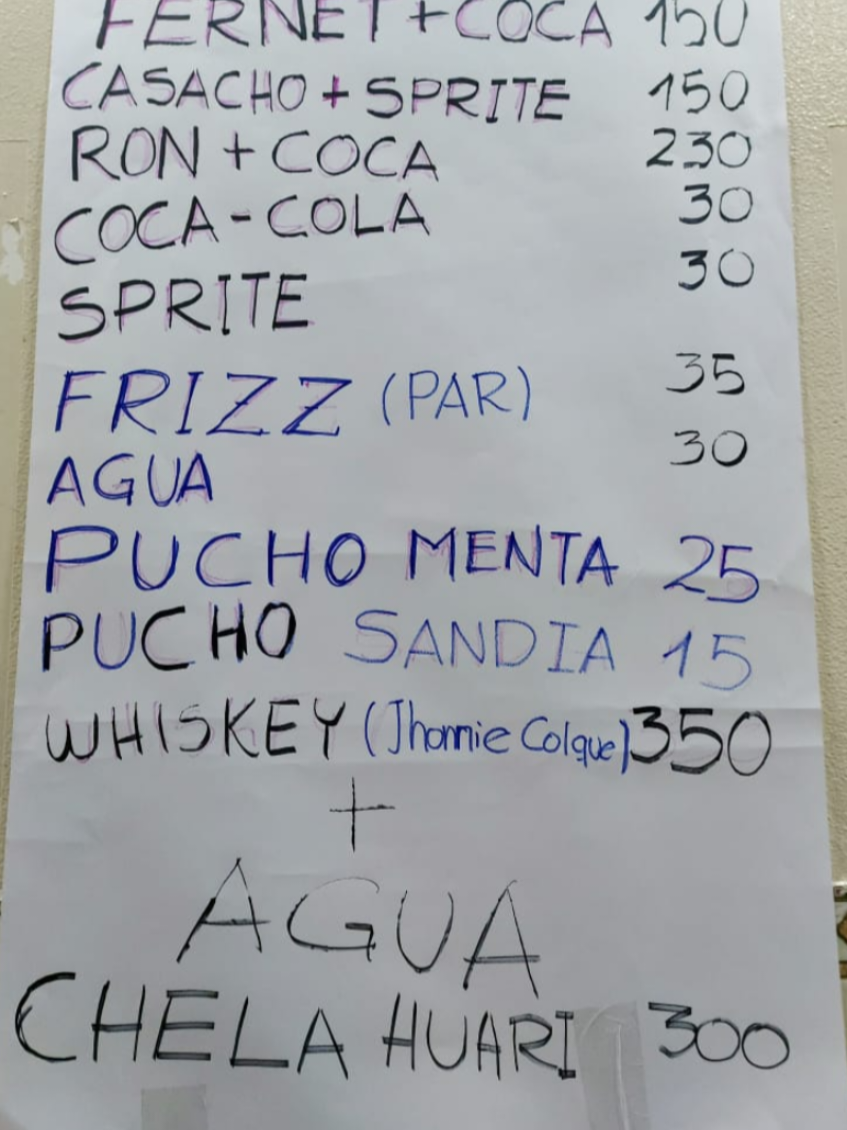 FERNET + COCA 150
CASACHO + SPRITE 150
RON + COCA 230
COCA - COLA 30
SPRITE 30
FRIZZ (PAR) 35
AGUA 30
PUCHO MENTA 25
PUCHO SANDIA 15
WHISKEY (Jhonnie Colque) 350
+
AGUA
CHELA HUARI 300